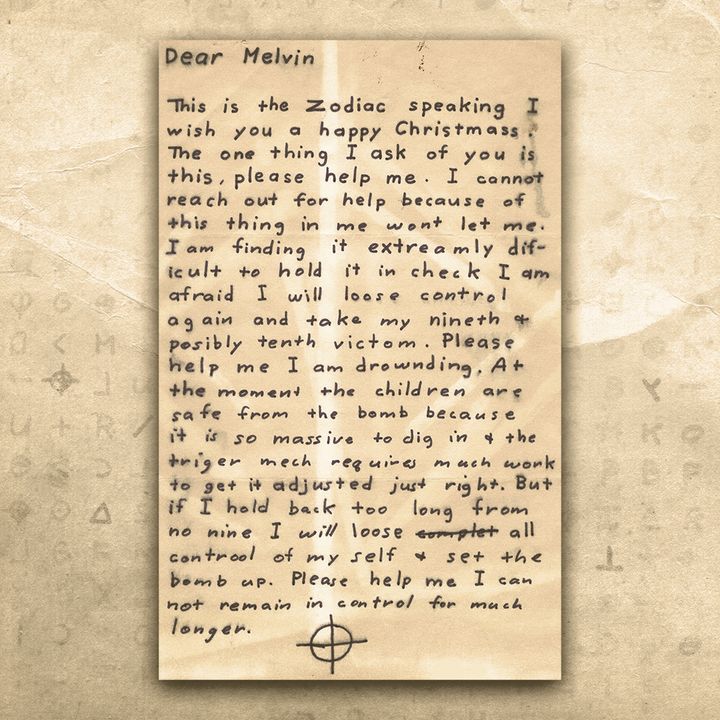 Dear Melvin
This is the Zodiac speaking I
wish you a happy Christmass.
The one thing I ask of you is
this, please help me. I cannot
reach out for help because of
this thing in me wont let me.
I am finding it extreamly dif-
icult to hold it in check I am
afraid I will loose control
again and take my nineth &
posibly tenth victom. Please
help me I am drownding. At
the moment the children are
safe from the bomb because
it is so massive to dig in & the
triger mech requires much work
to get it adjusted just right. But
if I hold back too long from
no nine I will loose complet all
controol of my self & set the
bomb up. Please help me I can
not remain in control for much
longer.